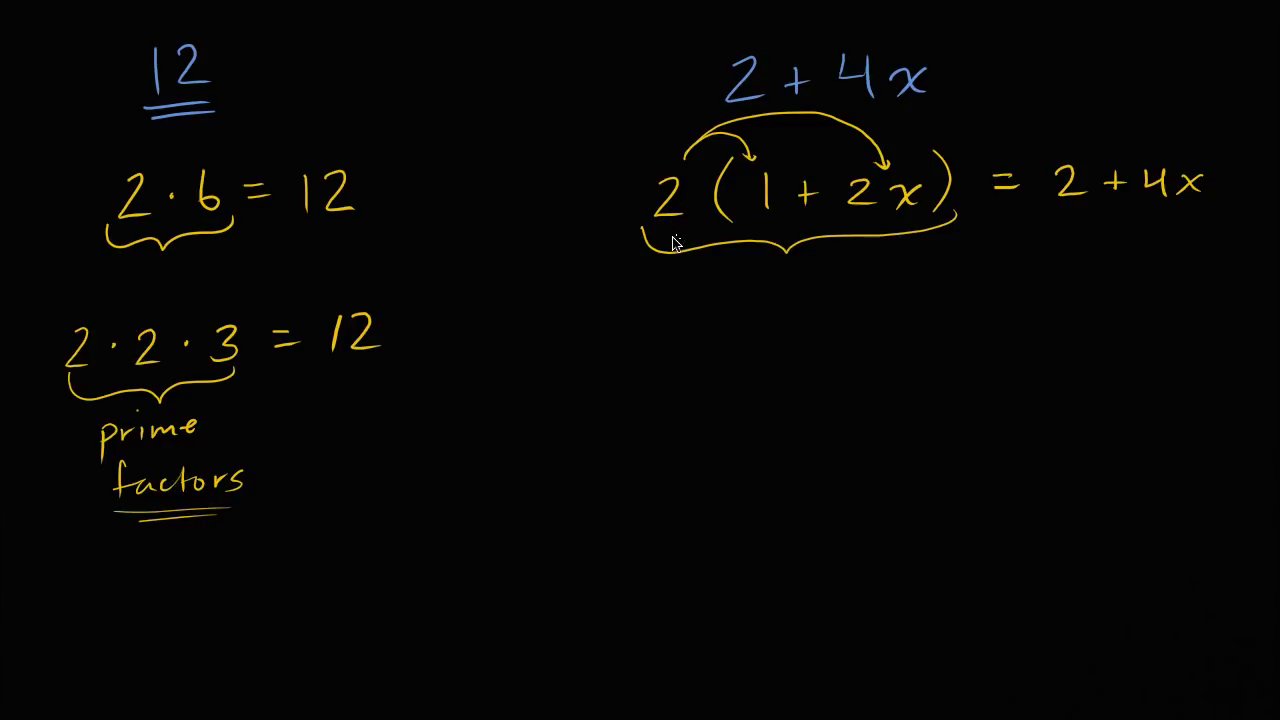 12
2 · 6 = 12
2 · 2 · 3 = 12
prime
factors
2 + 4x
2 (1 + 2x) = 2 + 4x